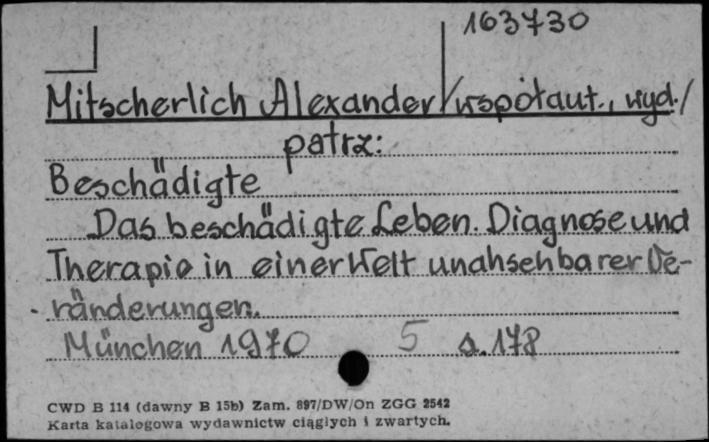 163730
Mitscherlich Alexander /współaut., wyd./
patrz:
Beschädigte
Das beschädigte Leben. Diagnose und
Therapie in einer Welt unahsehbarer Ve-
ränderungen.
München 1970 5 s. 178
CWD B 114 (dawny B 15b) Zam. 897/DW/On ZGG 2542
Karta katalogowa wydawnictw ciągłych i zwartych.